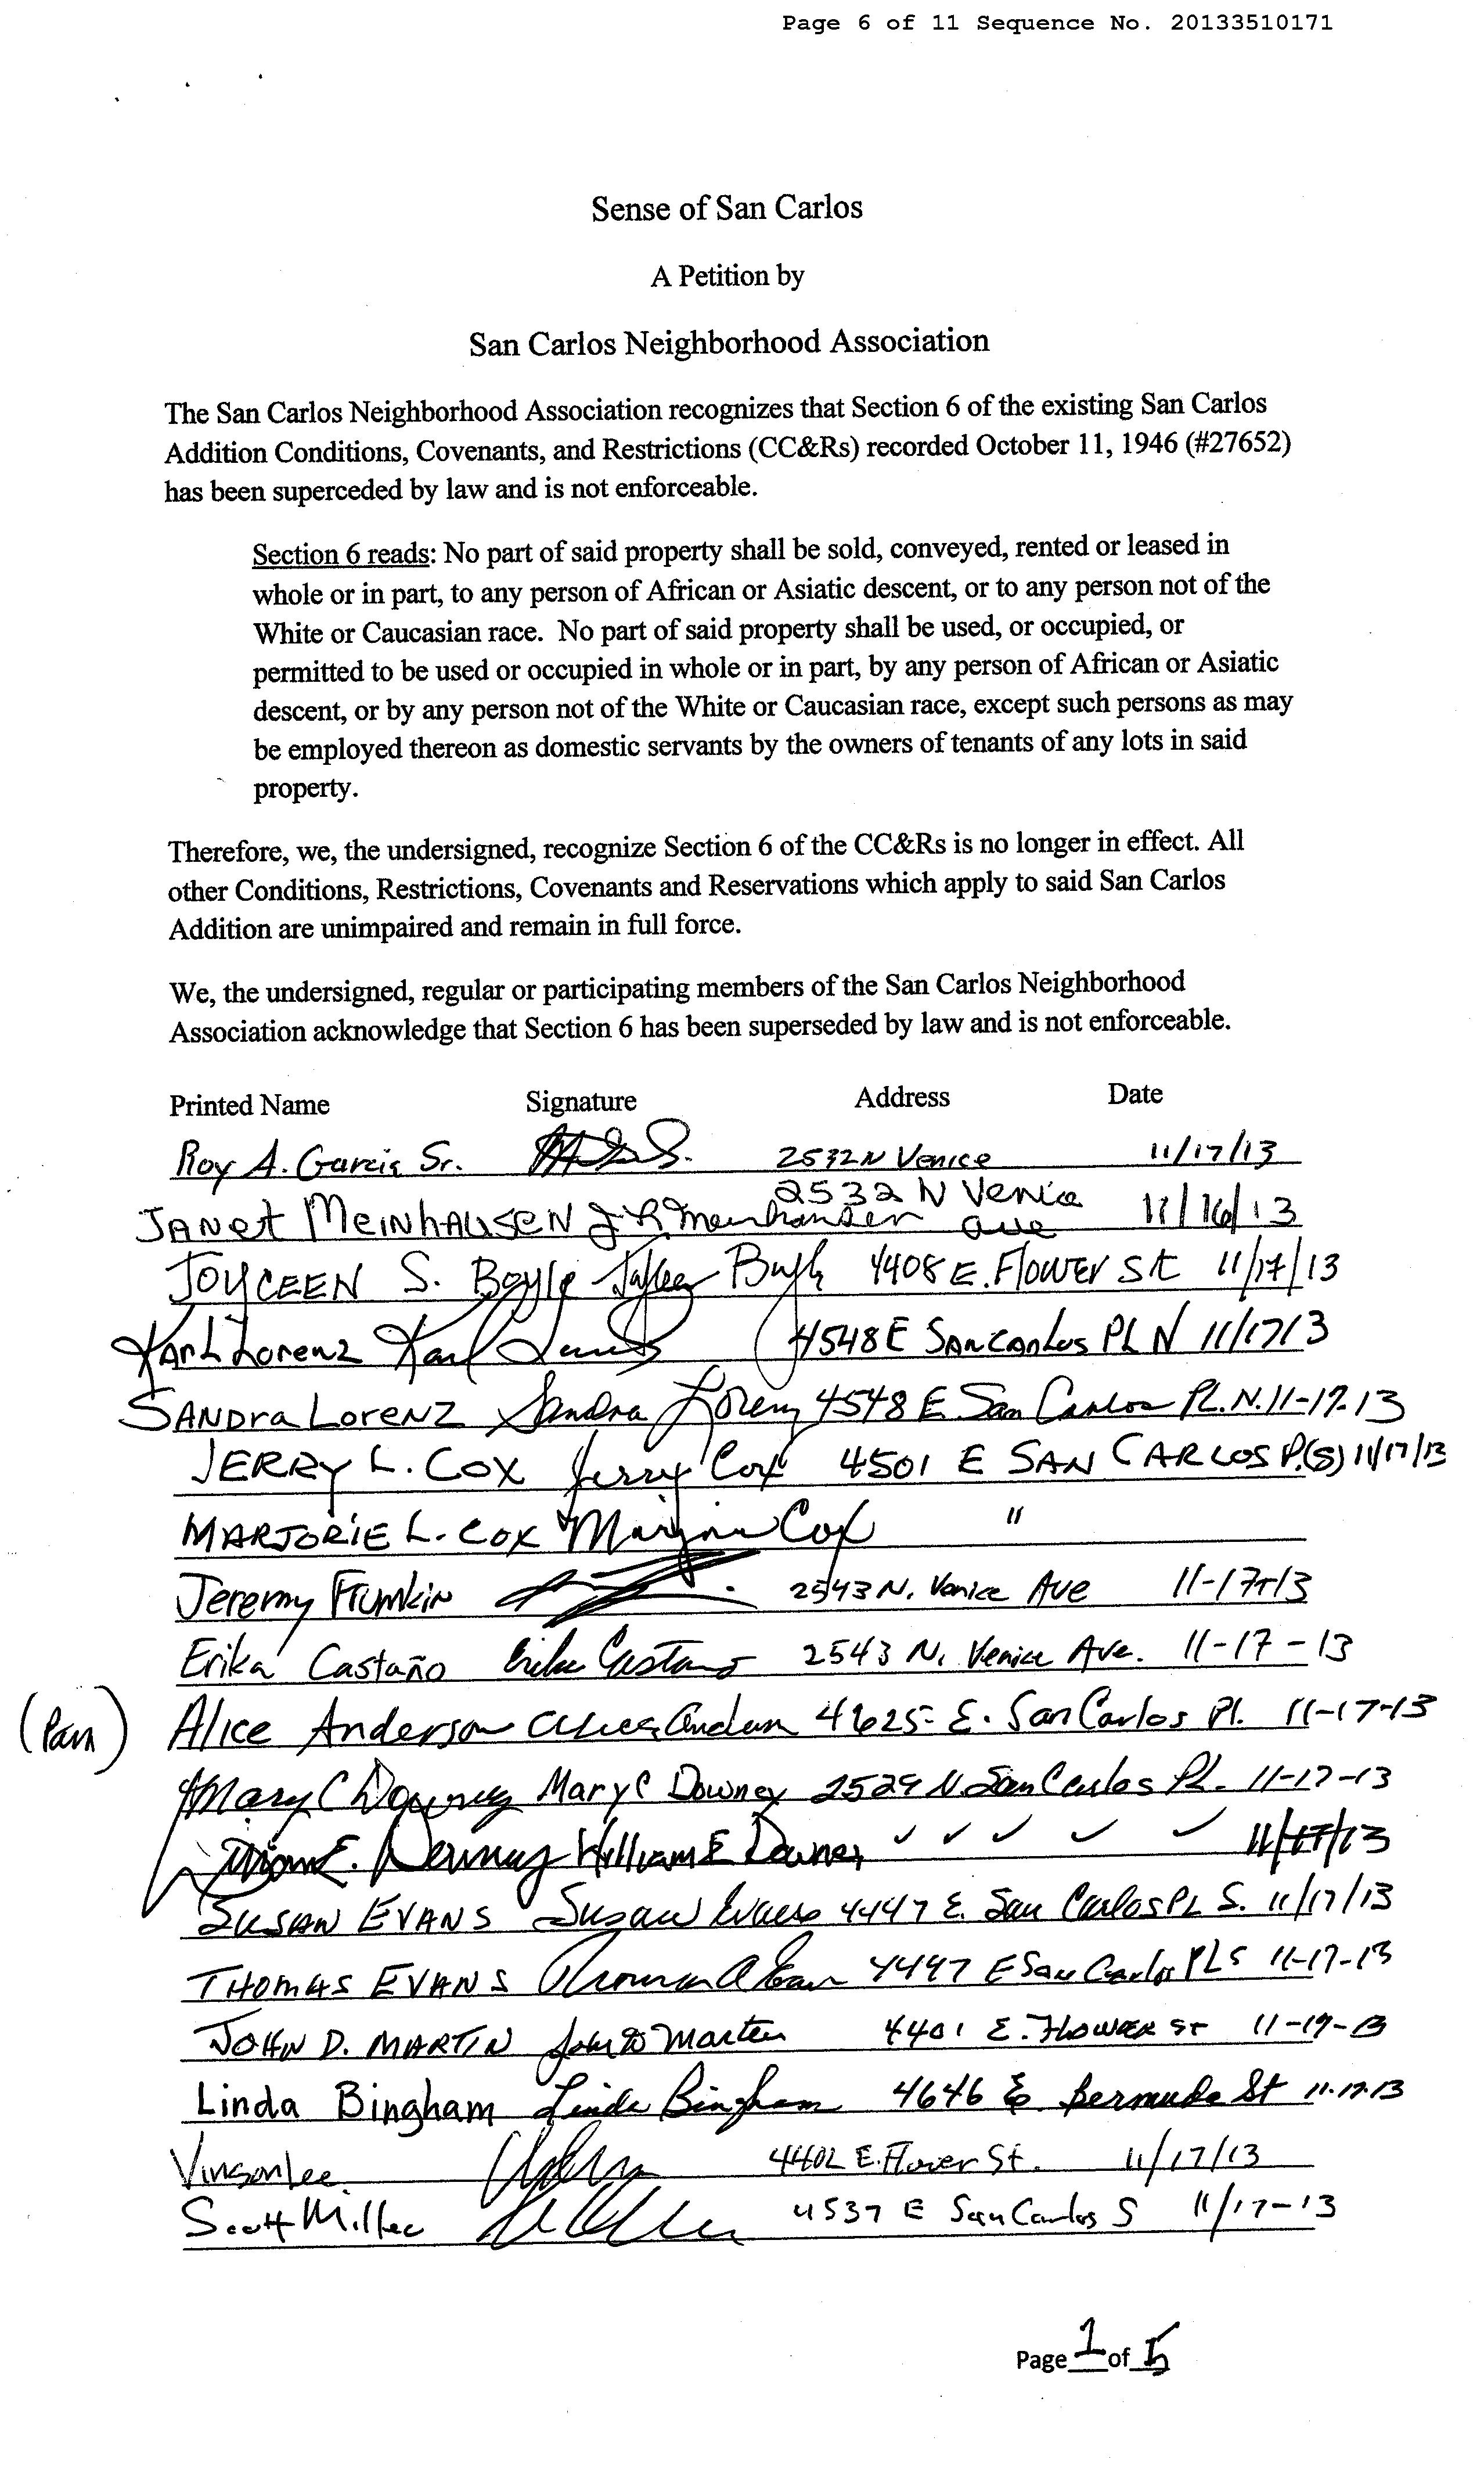 Page 6 of 11 Sequence No. 20133510171
Sense of San Carlos
A Petition by
San Carlos Neighborhood Association
The San Carlos Neighborhood Association recognizes that Section 6 of the existing San Carlos
Addition Conditions, Covenants, and Restrictions (CC&Rs) recorded October 11, 1946 (#27652)
has been superceded by law and is not enforceable.
Section 6 reads: No part of said property shall be sold, conveyed, rented or leased in
whole or in part, to any person of African or Asiatic descent, or to any person not of the
White or Caucasian race. No part of said property shall be used, or occupied, or
permitted to be used or occupied in whole or in part, by any person of African or Asiatic
descent, or by any person not of the White or Caucasian race, except such persons as may
be employed thereon as domestic servants by the owners of tenants of any lots in said
property.
Therefore, we, the undersigned, recognize Section 6 of the CC&Rs is no longer in effect. All
other Conditions, Restrictions, Covenants and Reservations which apply to said San Carlos
Addition are unimpaired and remain in full force.
We, the undersigned, regular or participating members of the San Carlos Neighborhood
Association acknowledge that Section 6 has been superseded by law and is not enforceable.
Printed Name Signature Address Date
Roy A. Garcia Sr. 2532 N Venice 11/17/13
JANet MeiNhAUSeN J R Meinhausen 2532 N Venice ave 11/16/13
JOYCEEN S. Boyle 4408 E. Flower St 11/17/13
Karl Lorenz Karl Lorenz 4548 E San Carlos PL N 11/17/13
SANDra LoreNZ Sandra Lorenz 4548 E San Carlos PL. N. 11-17-13
JERRY L. COX Jerry Cox 4501 E SAN CARLOS P.(S) 11/17/13
MARJORiE L. COX Marjorie Cox "
Jeremy Frumkin 2543 N. Venice Ave 11-17-13
Erika Castaño Erika Castano 2543 N. Venice Ave. 11-17-13
(Pam) Alice Anderson Alice Anderson 4625 E. San Carlos Pl. 11-17-13
Mary C Downey Mary C Downey 2529 N. San Carlos Pl. 11-17-13
William E. Downey William E Downey ✓ ✓ ✓ ✓ ✓ 11/17/13
SUSAN EVANS Susan Evans 4447 E. San Carlos PL S. 11/17/13
THOMAS EVANS Thomas A Evans 4447 E San Carlos PL S 11-17-13
JOHN D. MARTIN John D Martin 4401 E. FLOWER ST 11-17-13
Linda Bingham Linda Bingham 4646 E. Bermuda St 11.17.13
Vinson Lee 4402 E. Flower St. 11/17/13
Scott Miller 4537 E San Carlos S 11/17-13
Page 1 of 5